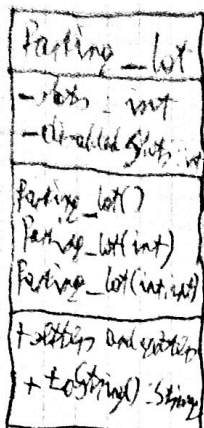 Parking_lot
- slots : int
- disabled Slots : int
Parking_lot()
Parking_lot(int)
Parking_lot(int, int)
+ setters and getters
+ toString() : String